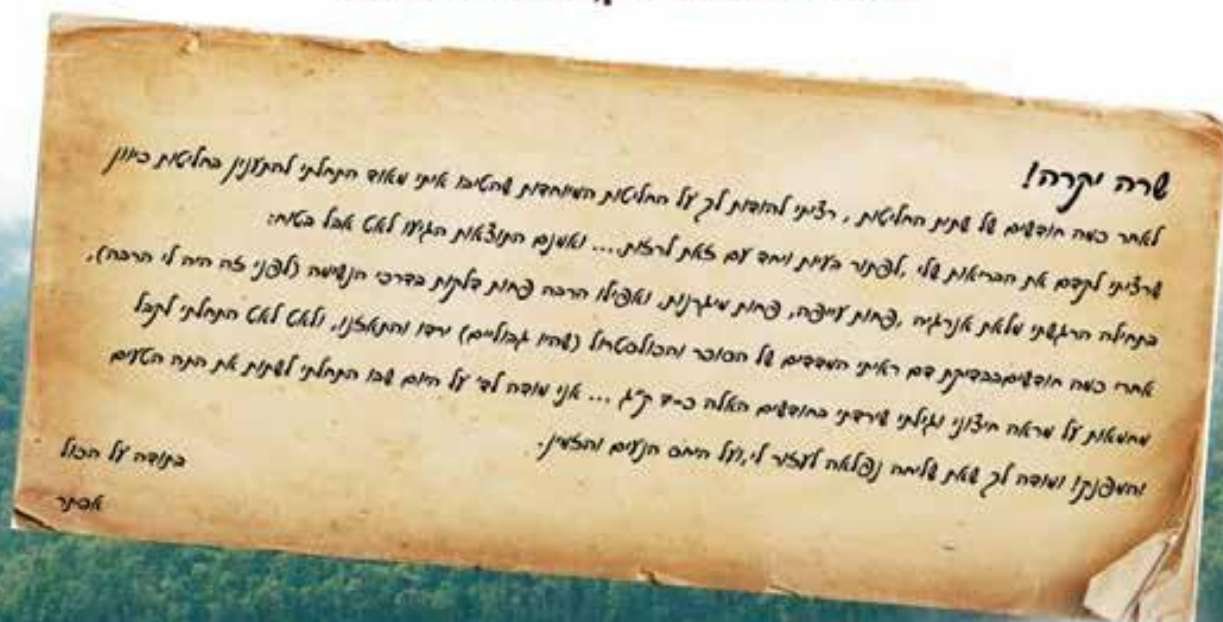 שרה יקרה!
לאחר כמה חודשים של שתית החליטות , רציתי להודות לך על החליטות המיוחדות שהטיבו איתי מאוד התחלתי להתענין בחליטות כיוון
שרציתי לקדם את הבריאות שלי ,לפתור בעיות ויחד עם זאת לרזות.... ואמנם התוצאות הגיעו לאט אבל בטוח:
בתחילה הרגשתי מלאת אנרגיה ,פחות עייפה, פחות מיגרנות, ואפילו הרבה פחות דלקות בדרכי הנשימה (לפני זה היה לי הרבה),
אחרי כמה חודשיםבבדיקת דם ראיתי המדדים של הסוכר והכולסטרול (שהיו גבוליים) ירדו והתאזנו, ולאט לאט התחלתי לקבל
מחמאות על מראה חיצוני וגיליתי שירדתי בחודשים האלה כ-ד ק"ג ... אני מודה לד' על היום שבו התחלתי לשתות את התה הטעים
והמפנק! ומודה לך שאת שליחה נפלאה לעזור לי,ועל היחס הנעים והזמין.
בתודה על הכול
אסתר